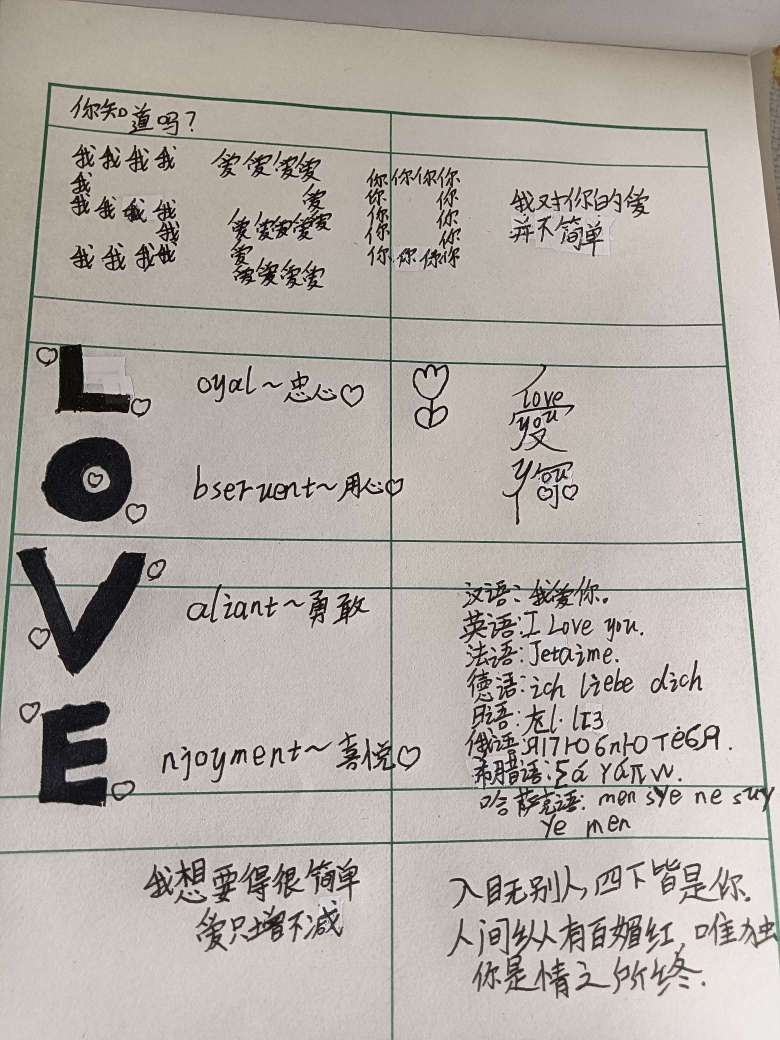 你知道吗?
我我我我 爱爱爱爱 你你你你
我 爱 你 你
我我我我 爱爱爱爱 你 你
我 爱 你 你
我我我我 爱爱爱爱 你你你你
我对你的爱
并不简单
L oyal~忠心
O bseruent~用心
V aliant~勇敢
E njoyment~喜悦
love
you
you
汉语:我爱你。
英语:I Love you.
法语:Jetaime.
德语:ich liebe dich
日语:
俄语:
希腊语:
哈萨克语:men sye ne suy
ye men
我想要得很简单
爱只增不减
入目无别人,四下皆是你.
人间纵有百媚红,唯独
你是情之所终.